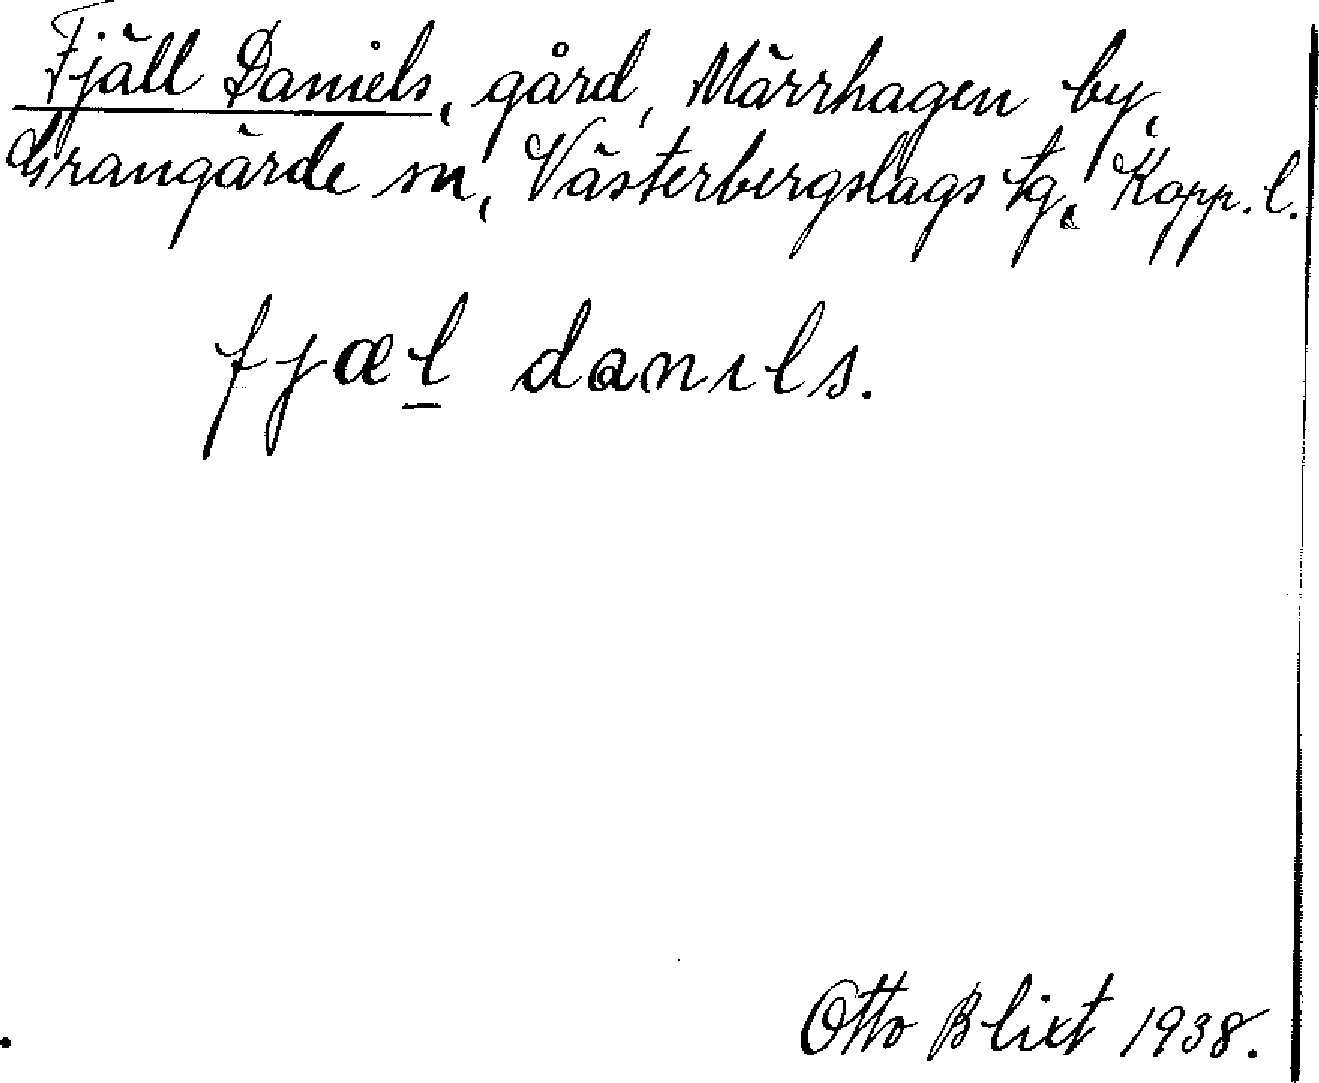 Fjäll Daniels, gård, Märrhagen by,
Grangärde sn, Västerbergslags tg, Kopp. l.
fjæl̲ danɩls.
Otto Blixt 1938.